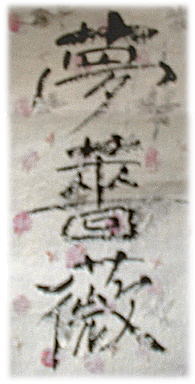 夢薔薇